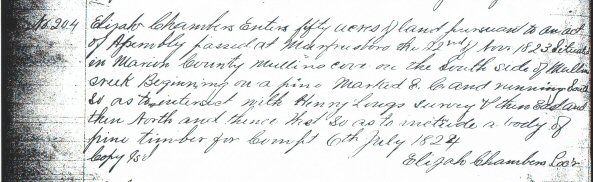 No. 204 Elijah Chambers Enters fifty acres of land pursuant to an act
of Assembly passed at Murfresboro the 22nd of Nov 1823 Situate
in Marion County Mullins cove on the South side of Mullins
creek Beginning on a pine Marked E. C and running South
so as to interest with Henry Longs survey & then East and
then North and thence West so as to include a body of
pine timber for Compt 6th July 1824
Copy Elijah Chambers Loc'r